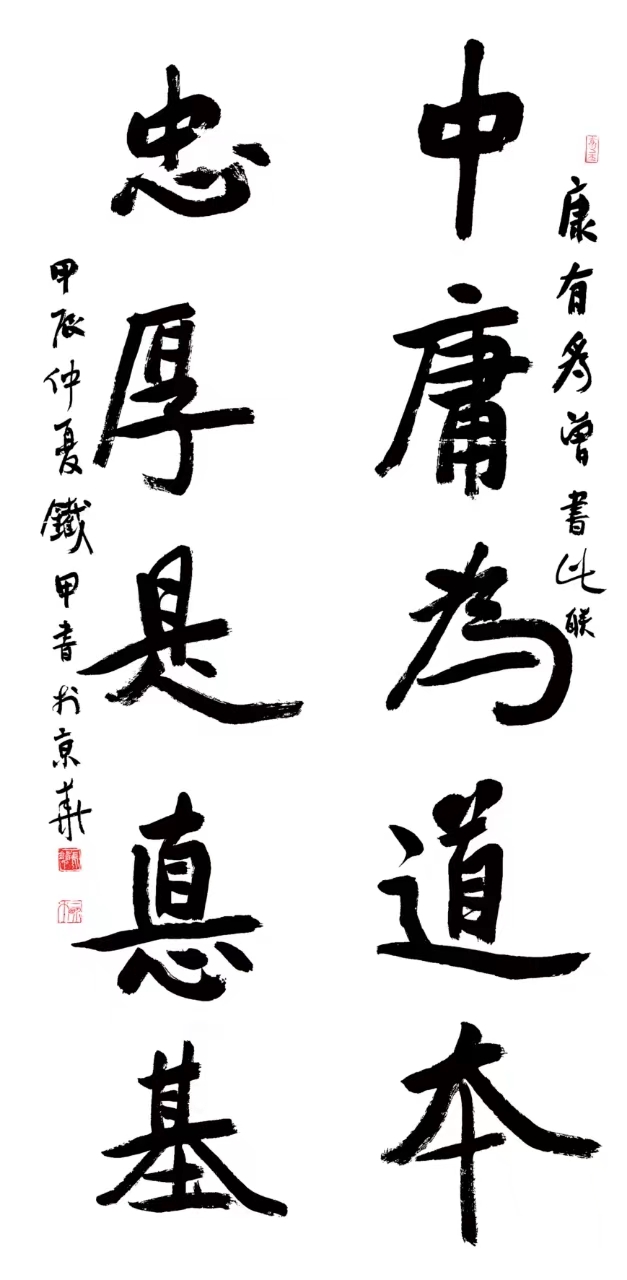 康有為曾書此联
中庸為道本
忠厚是悳基
甲辰仲夏鐵甲書於京華